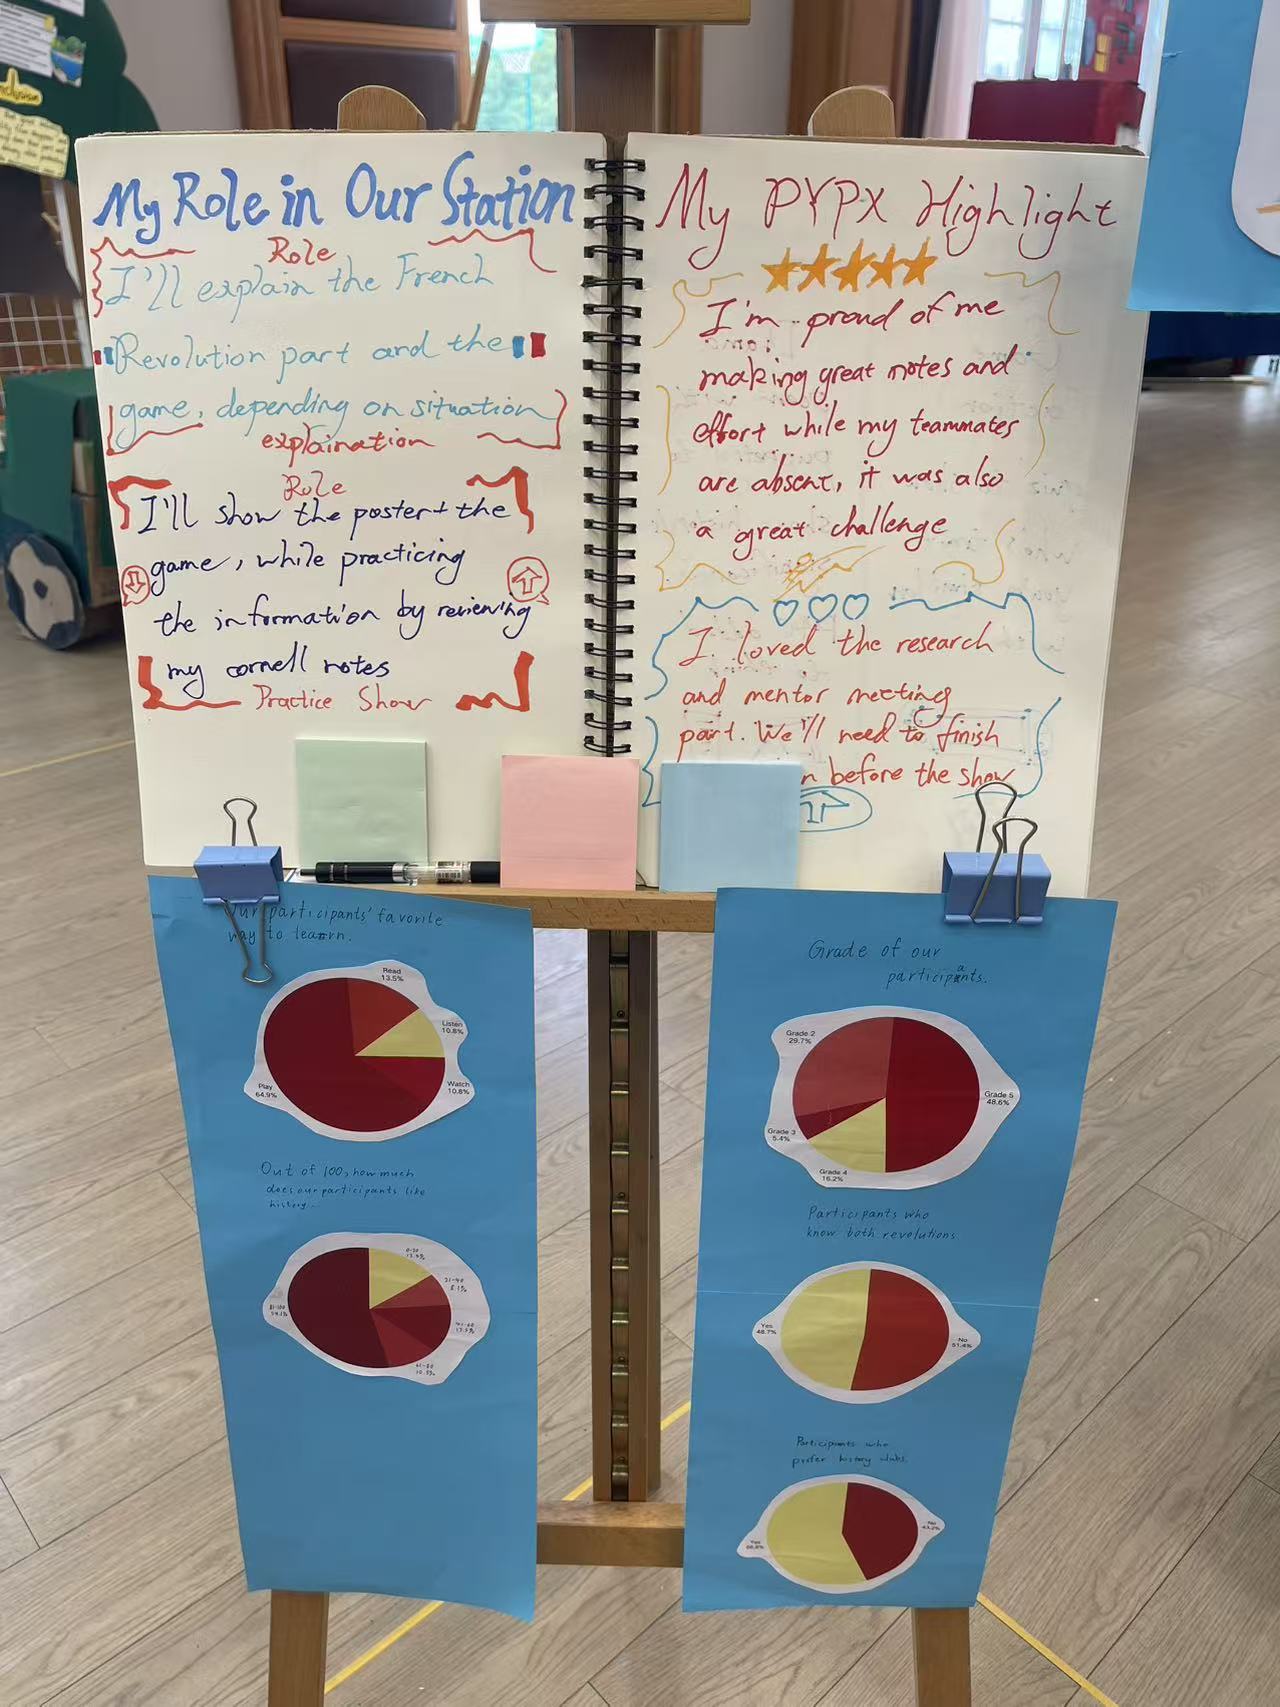 My Role in Our Station
Role
I'll explain the French
Revolution part and the
game, depending on situation
explaination
Role
I'll show the poster + the
game, while practicing
the information by reviewing
my cornell notes
Practice Show
My PYPX Highlight
I'm proud of me
making great notes and
effort while my teammates
are absent, it was also
a great challenge
I loved the research
and mentor meeting
part. We'll need to finish
before the show
Our participants' favorite
way to learn.
Read
13.5%
Listen
10.8%
Watch
10.8%
Play
64.9%
Out of 100, how much
does our participants like
history
0-20
13.5%
21-40
8.1%
41-60
13.5%
61-80
10.8%
81-100
54.1%
Grade of our
participants.
Grade 2
29.7%
Grade 5
48.6%
Grade 3
5.4%
Grade 4
16.2%
Participants who
know both revolutions
Yes
48.7%
No
51.4%
Participants who
prefer history clubs.
No
43.2%
Yes